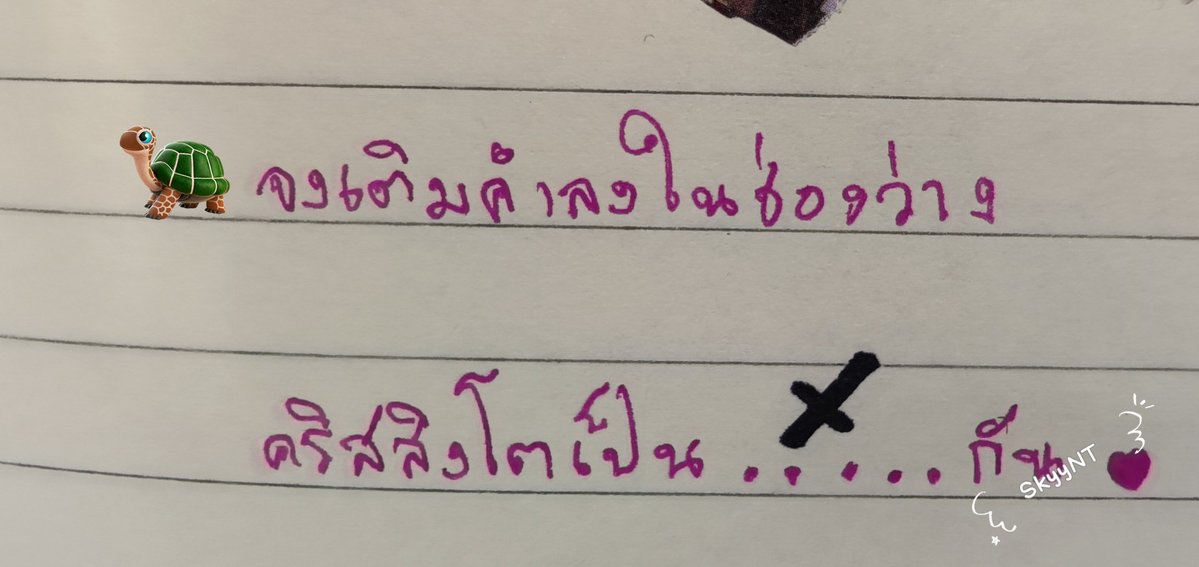 จงเติมคำลงในช่องว่าง
คริสสิงโตเป็น ...... กัน
SkyyNT